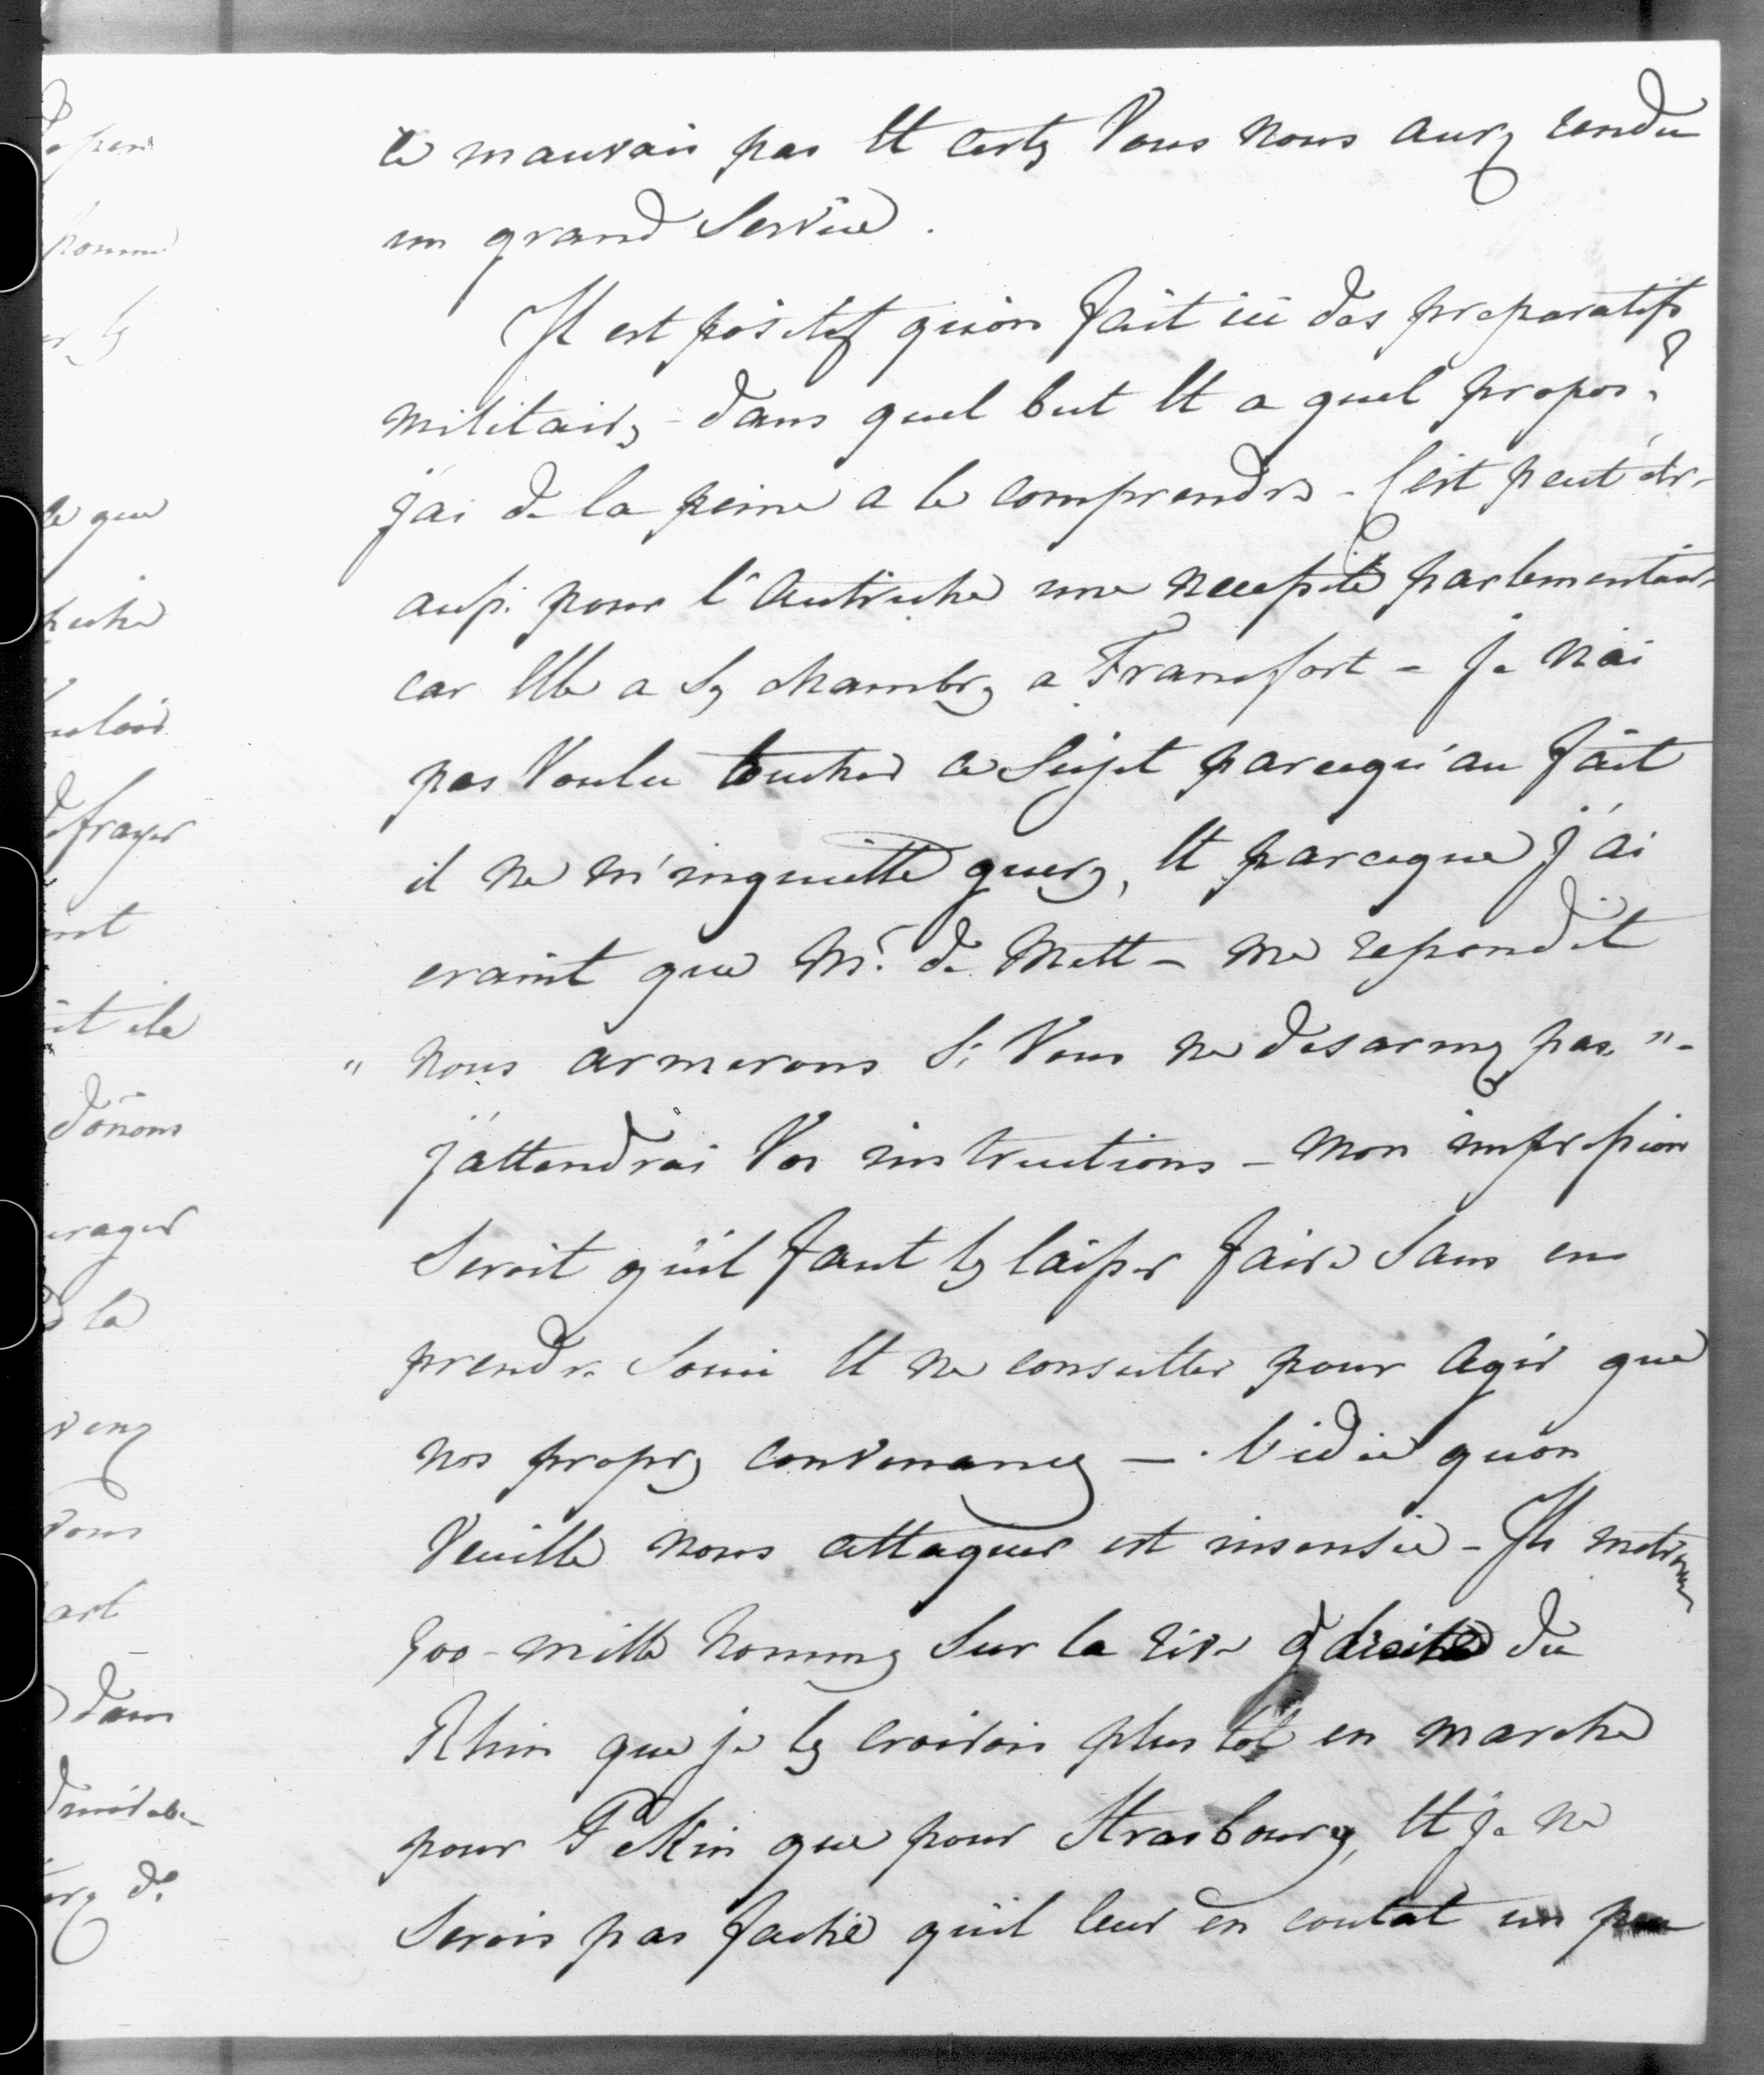 ce mauvais pas Et certes Vous nous aurez rendu
un grand Service.
Il est positif qu'on fait ici des preparatifs
militaires - dans quel but Et a quel propos?
j'ai de la peine a le comprendre - C'est peut être
aussi pour l'Autriche une necessité parlementaire
car Elle a Ses chambres a Francfort - je n'ai
pas Voulu toucher ce Sujet parcequ'au fait
il ne m'inquiette gueres, Et parceque j'ai
craint que Mr. de Mett - me repondit
" nous armerons Si Vous ne desarmez pas " -
j'attendrai Vos instructions - mon impression
Seroit qu'il faut les laisser faire Sans en
prendre Souci Et ne consulter pour agir que
nos propres convenances - . l'idée qu'on
Veuille nous attaquer est insensée - Ils
mille hommes Sur la rive droite du
Rhin que je les croirois plustot en marche
pour Pekin que pour Strasbourg, Et je ne
Serois pas faché qu'il leur en coutat un peu
open
homme
le que
defrayer
donons
la
dans